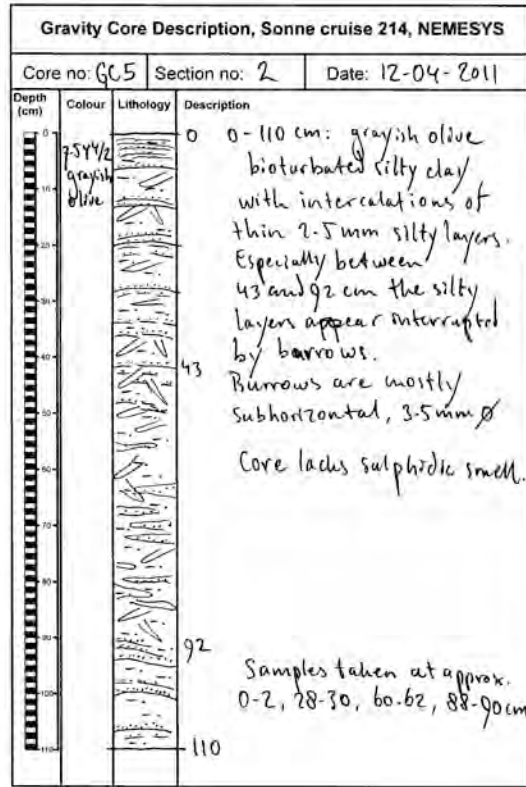 Gravity Core Description, Sonne cruise 214, NEMESYS
Core no: GC5 Section no: 2 Date: 12-04-2011
Depth (cm) Colour Lithology Description
0
10
20
30
40
50
60
70
80
90
100
110
7.5Y4/2
grayish
olive
0
43
92
110
0-110 cm: grayish olive
bioturbated silty clay
with intercalations of
thin 2-5 mm silty layers.
Especially between
43 and 92 cm the silty
layers appear interrupted
by burrows.
Burrows are mostly
subhorizontal, 3.5mm Ø
Core lacks sulphidic smell.
Samples taken at approx.
0-2, 28-30, 60-62, 88-90cm